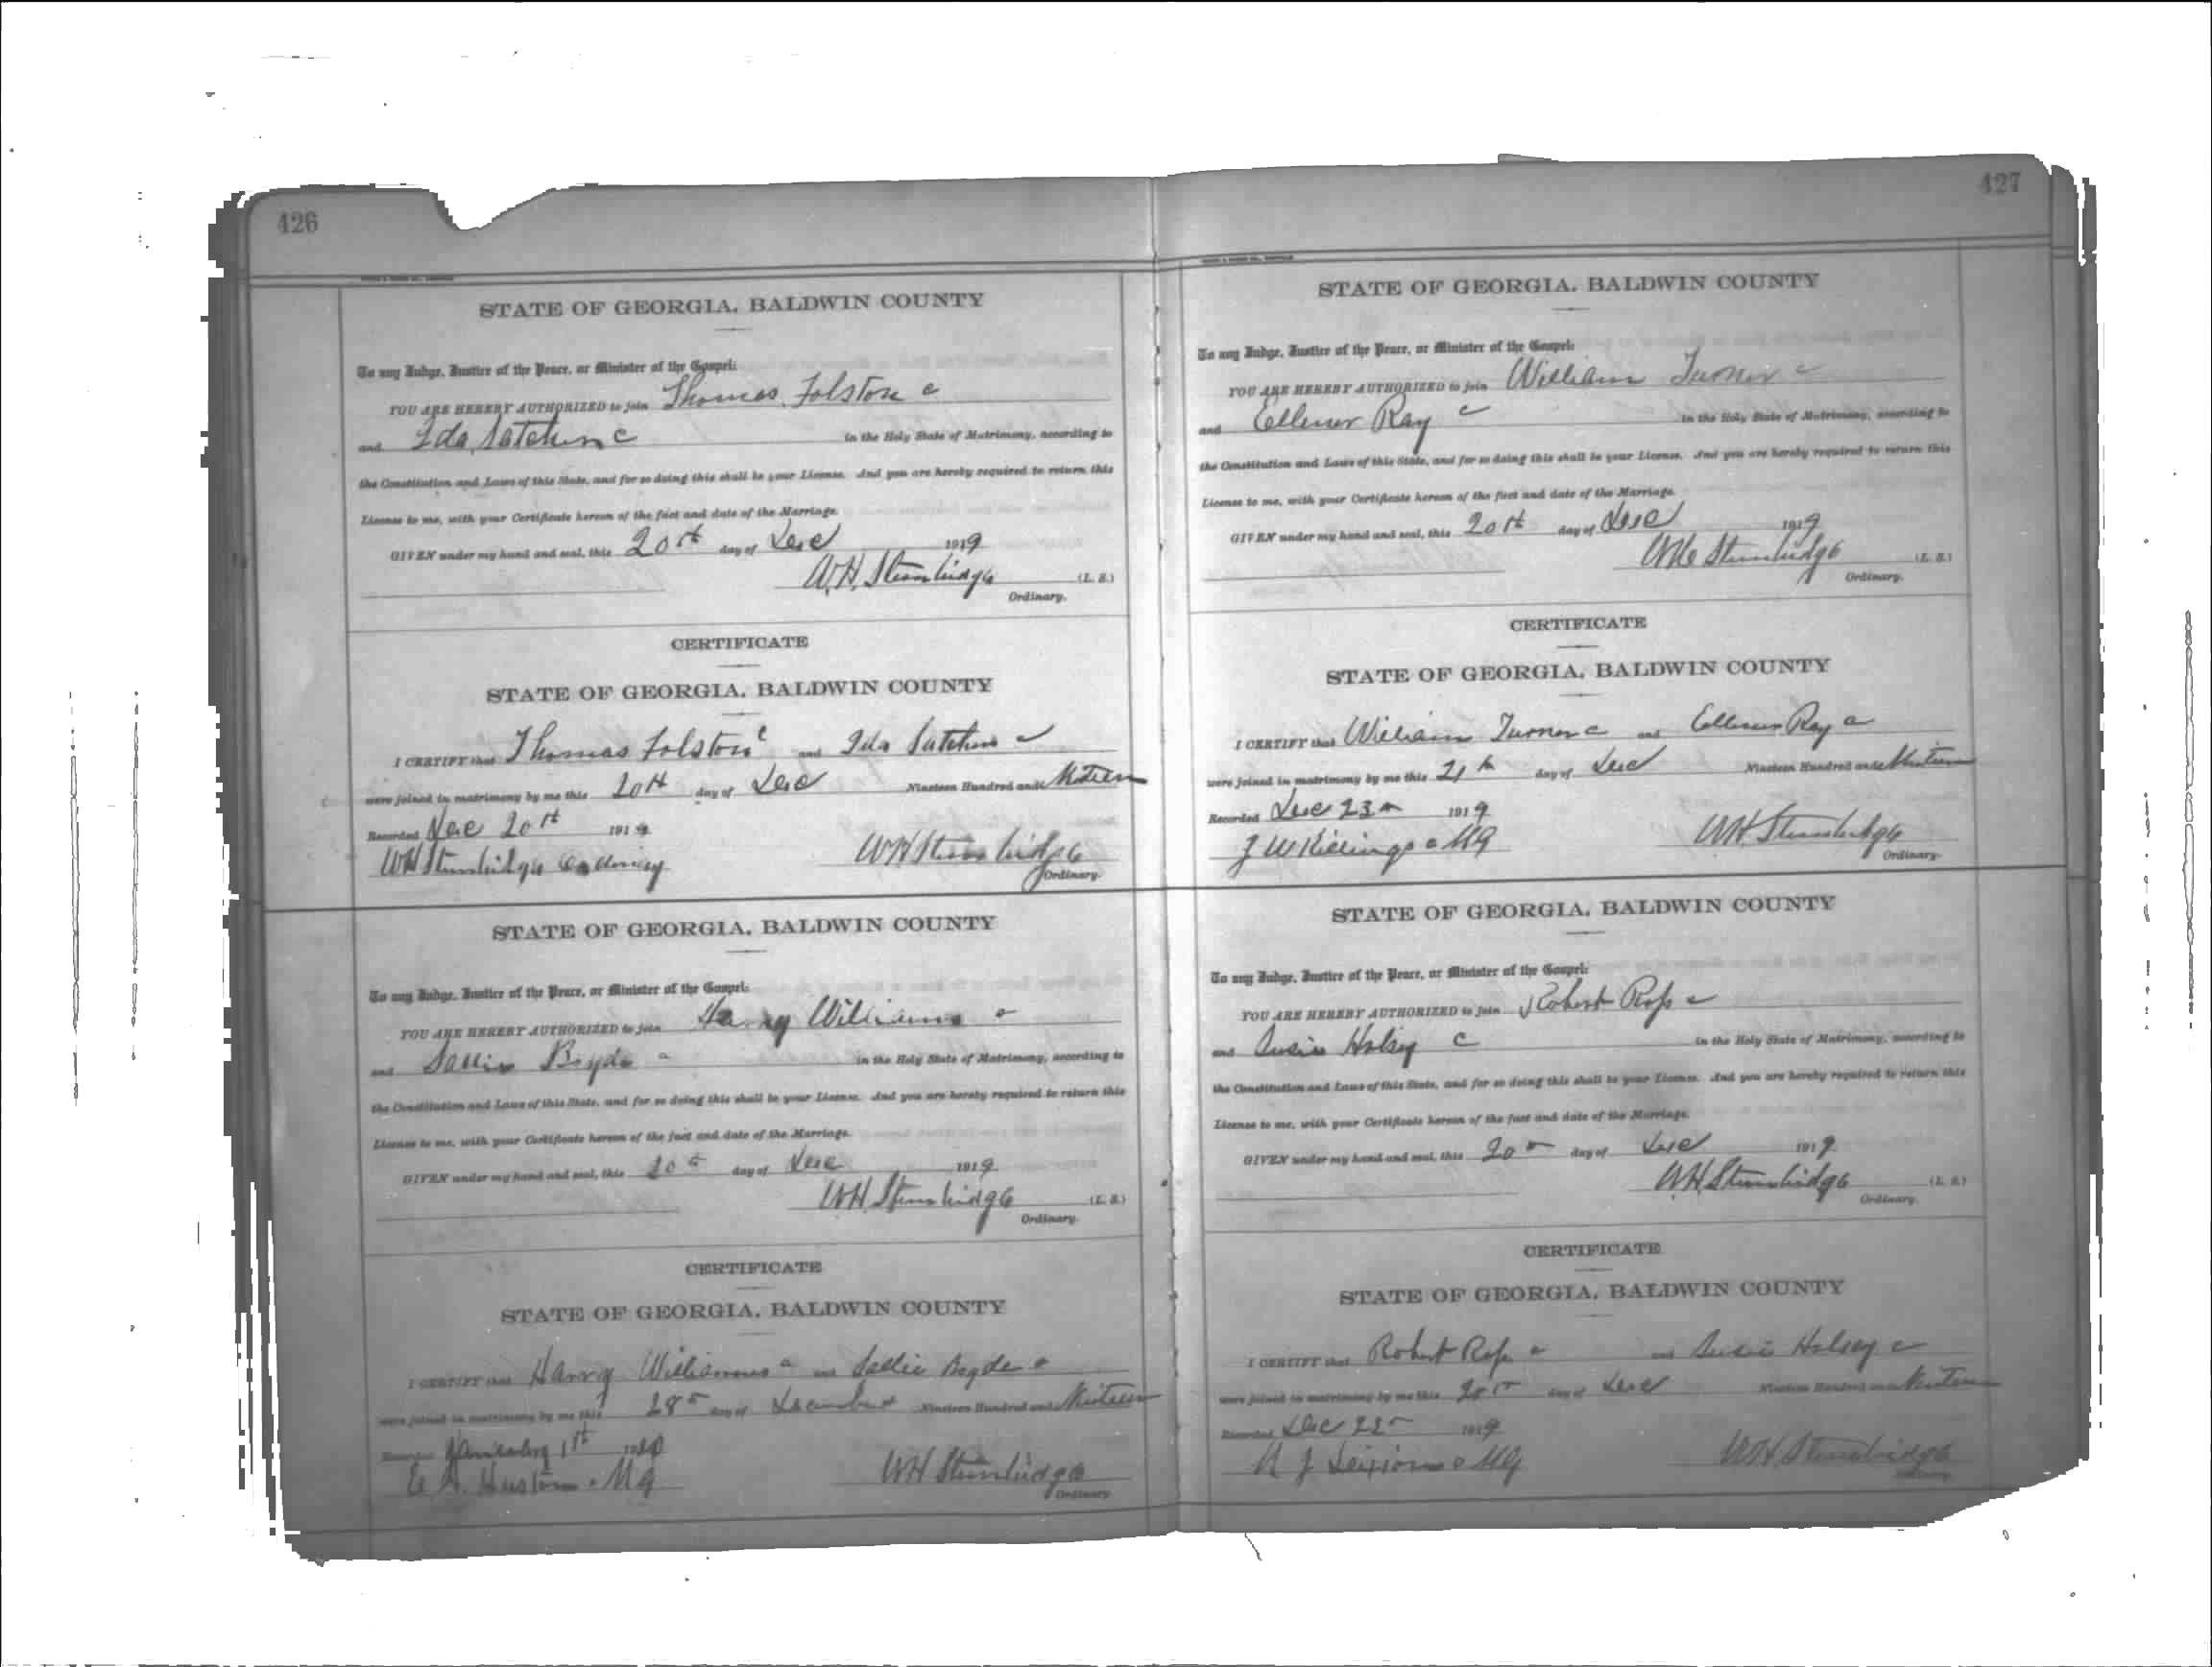 426
STATE OF GEORGIA, BALDWIN COUNTY
To any Judge, Justice of the Peace, or Minister of the Gospel:
YOU ARE HEREBY AUTHORIZED to join Thomas Folston c
and Ida c in the Holy State of Matrimony, according to
the Constitution and Laws of this State, and for so doing this shall be your License. And you are hereby required to return this
License to me, with your Certificate hereon of the fact and date of the Marriage.
GIVEN under my hand and seal, this 20th day of Dec 1919
W.H. Stembridge (L. S.)
Ordinary.
CERTIFICATE
STATE OF GEORGIA, BALDWIN COUNTY
I CERTIFY that Thomas Folston c and Ida c
were joined in matrimony by me this 20th day of Dec Nineteen Hundred and
Recorded Dec 20th 1919
WH Stembridge Ordinary WH Stembridge
Ordinary.
STATE OF GEORGIA, BALDWIN COUNTY
To any Judge, Justice of the Peace, or Minister of the Gospel:
YOU ARE HEREBY AUTHORIZED to join Harry Williams c
and Sallie Boyde c in the Holy State of Matrimony, according to
the Constitution and Laws of this State, and for so doing this shall be your License. And you are hereby required to return this
License to me, with your Certificate hereon of the fact and date of the Marriage.
GIVEN under my hand and seal, this 20th day of Dec 1919
WH Stembridge (L. S.)
Ordinary.
CERTIFICATE
STATE OF GEORGIA, BALDWIN COUNTY
I CERTIFY that Harry Williams c and Sallie Boyde c
were joined in matrimony by me this 28th day of December Nineteen Hundred and
Recorded January 1st 1920
MG WH Stembridge
Ordinary.
427
STATE OF GEORGIA, BALDWIN COUNTY
To any Judge, Justice of the Peace, or Minister of the Gospel:
YOU ARE HEREBY AUTHORIZED to join William Turner c
and Ellener Ray c in the Holy State of Matrimony, according to
the Constitution and Laws of this State, and for so doing this shall be your License. And you are hereby required to return this
License to me, with your Certificate hereon of the fact and date of the Marriage.
GIVEN under my hand and seal, this 20th day of Dec 1919
WH Stembridge (L. S.)
Ordinary.
CERTIFICATE
STATE OF GEORGIA, BALDWIN COUNTY
I CERTIFY that William Turner c and Ellener Ray c
were joined in matrimony by me this 21st day of Dec Nineteen Hundred and
Recorded Dec 23 1919
J W Killings c MG WH Stembridge
Ordinary.
STATE OF GEORGIA, BALDWIN COUNTY
To any Judge, Justice of the Peace, or Minister of the Gospel:
YOU ARE HEREBY AUTHORIZED to join Robert Ross c
and Susie Holsey c in the Holy State of Matrimony, according to
the Constitution and Laws of this State, and for so doing this shall be your License. And you are hereby required to return this
License to me, with your Certificate hereon of the fact and date of the Marriage.
GIVEN under my hand and seal, this 20th day of Dec 1919
WH Stembridge (L. S.)
Ordinary.
CERTIFICATE
STATE OF GEORGIA, BALDWIN COUNTY
I CERTIFY that Robert Ross c and Susie Holsey c
were joined in matrimony by me this 20th day of Dec Nineteen Hundred and
Recorded Dec 1919
MG WH Stembridge
Ordinary.